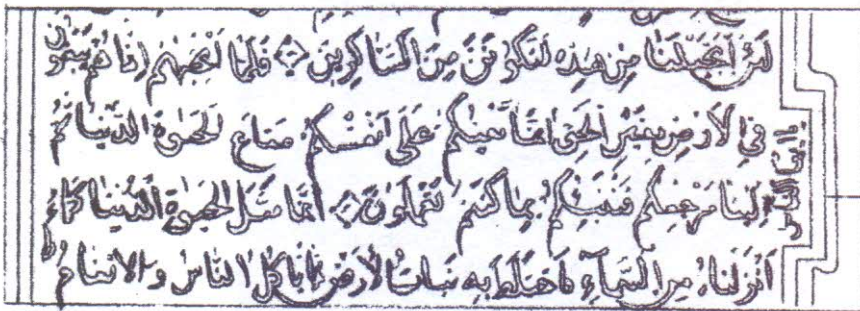 لَئِنْ اَنْجَيْتَنَا مِنْ هٰذِهِ لَنَكُونَنَّ مِنَ الشَّاكِرِينَ فَلَمَّا اَنْجٰيهُمْ اِذَا هُمْ يَبْغُونَ
فِي الْاَرْضِ بِغَيْرِ الْحَقِّ اِنَّمَا بَغْيُكُمْ عَلٰى اَنْفُسِكُمْ مَتَاعَ الْحَيٰوةِ الدُّنْيَا ثُمَّ
اِلَيْنَا مَرْجِعُكُمْ فَنُنَبِّئُكُمْ بِمَا كُنْتُمْ تَعْمَلُونَ اِنَّمَا مَثَلُ الْحَيٰوةِ الدُّنْيَا كَمَاءٍ
اَنْزَلْنَاهُ مِنَ السَّمَاءِ فَاخْتَلَطَ بِهِ نَبَاتُ الْاَرْضِ مِمَّا يَاْكُلُ النَّاسُ وَالْاَنْعَامُ